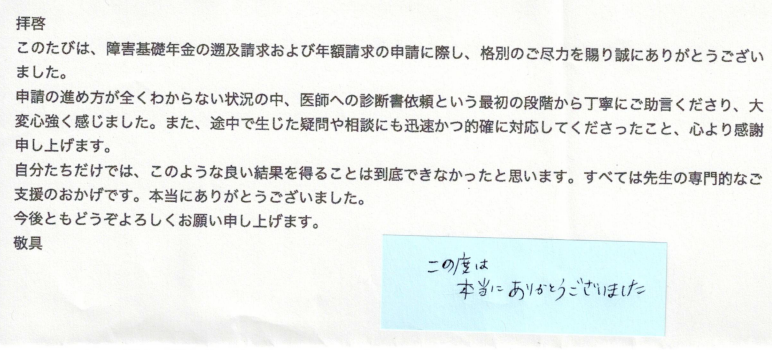 拝啓
このたびは、障害基礎年金の遡及請求および年額請求の申請に際し、格別のご尽力を賜り誠にありがとうござい
ました。
申請の進め方が全くわからない状況の中、医師への診断書依頼という最初の段階から丁寧にご助言くださり、大
変心強く感じました。また、途中で生じた疑問や相談にも迅速かつ的確に対応してくださったこと、心より感謝
申し上げます。
自分たちだけでは、このような良い結果を得ることは到底できなかったと思います。すべては先生の専門的なご
支援のおかげです。本当にありがとうございました。
今後ともどうぞよろしくお願い申し上げます。
敬具
この度は
本当にありがとうございました